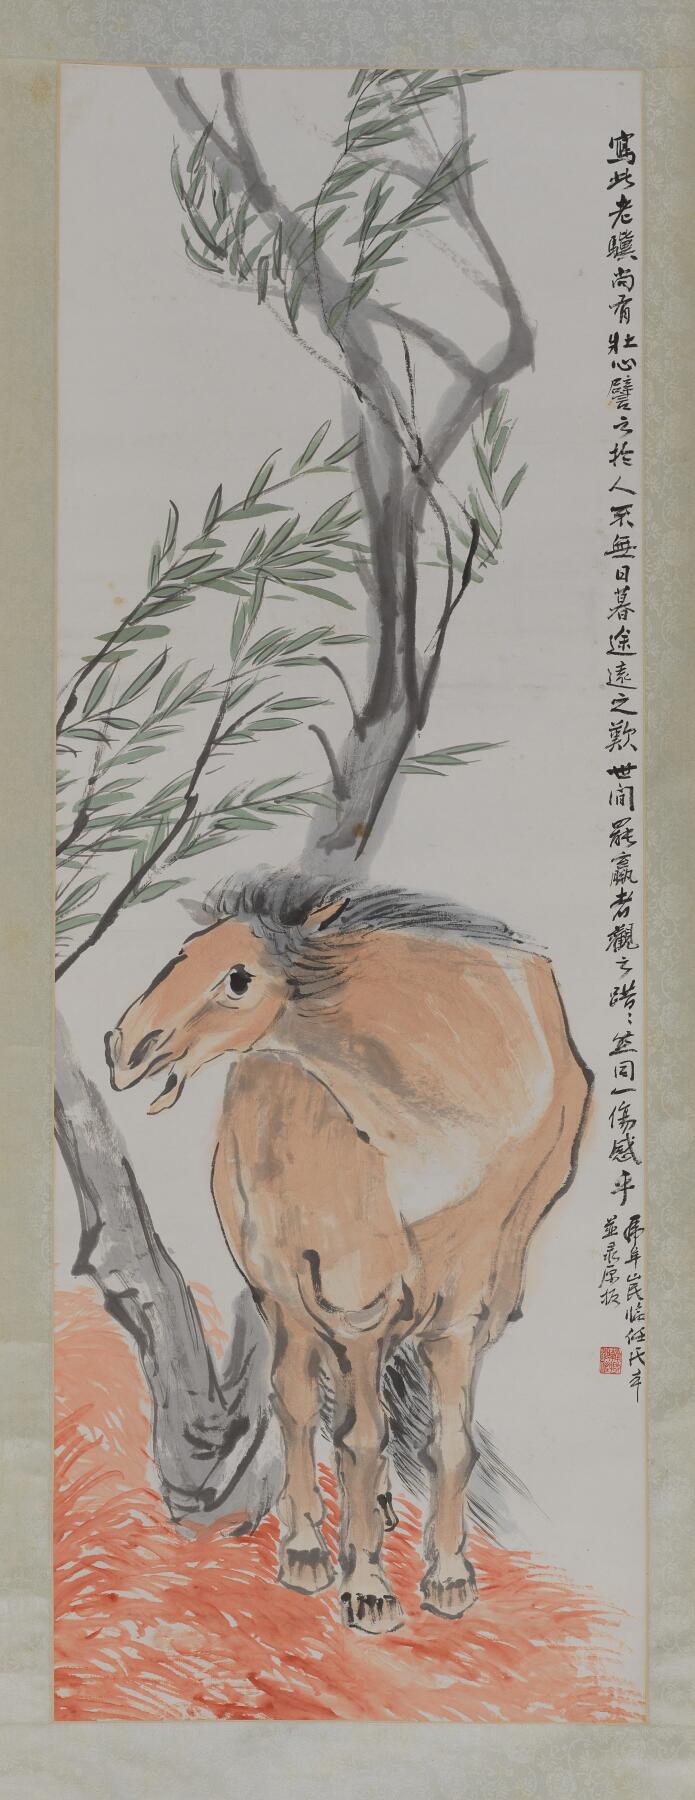 寫此老驥尚有壯心譬之於人不無日暮途遠之歎世間罷羸者觀之踖〻然同一傷感乎
虎年山民臨任氏本
並录原报